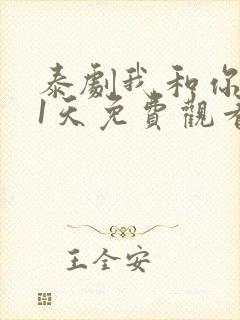 泰劇我和你
1天免費觀看
王全安